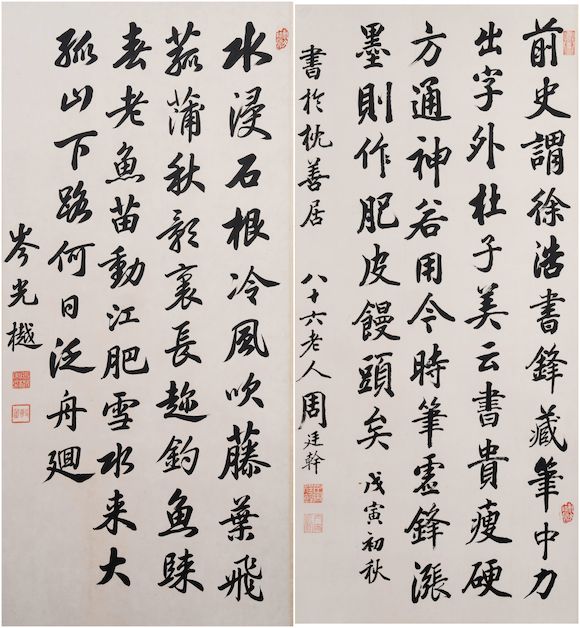 前史謂徐浩書鋒藏筆中力
出字外杜子美云書貴瘦硬
方通神若用今時筆虛鋒漲
墨則作肥皮饅頭矣 戊寅初秋
書於枕善居 八十六老人周廷幹
水浸石根冷風吹藤葉飛
菰蒲秋影裏長趂釣魚歸
春老魚苗動江肥雪水来大
孤山下路何日泛舟廻
岑光樾